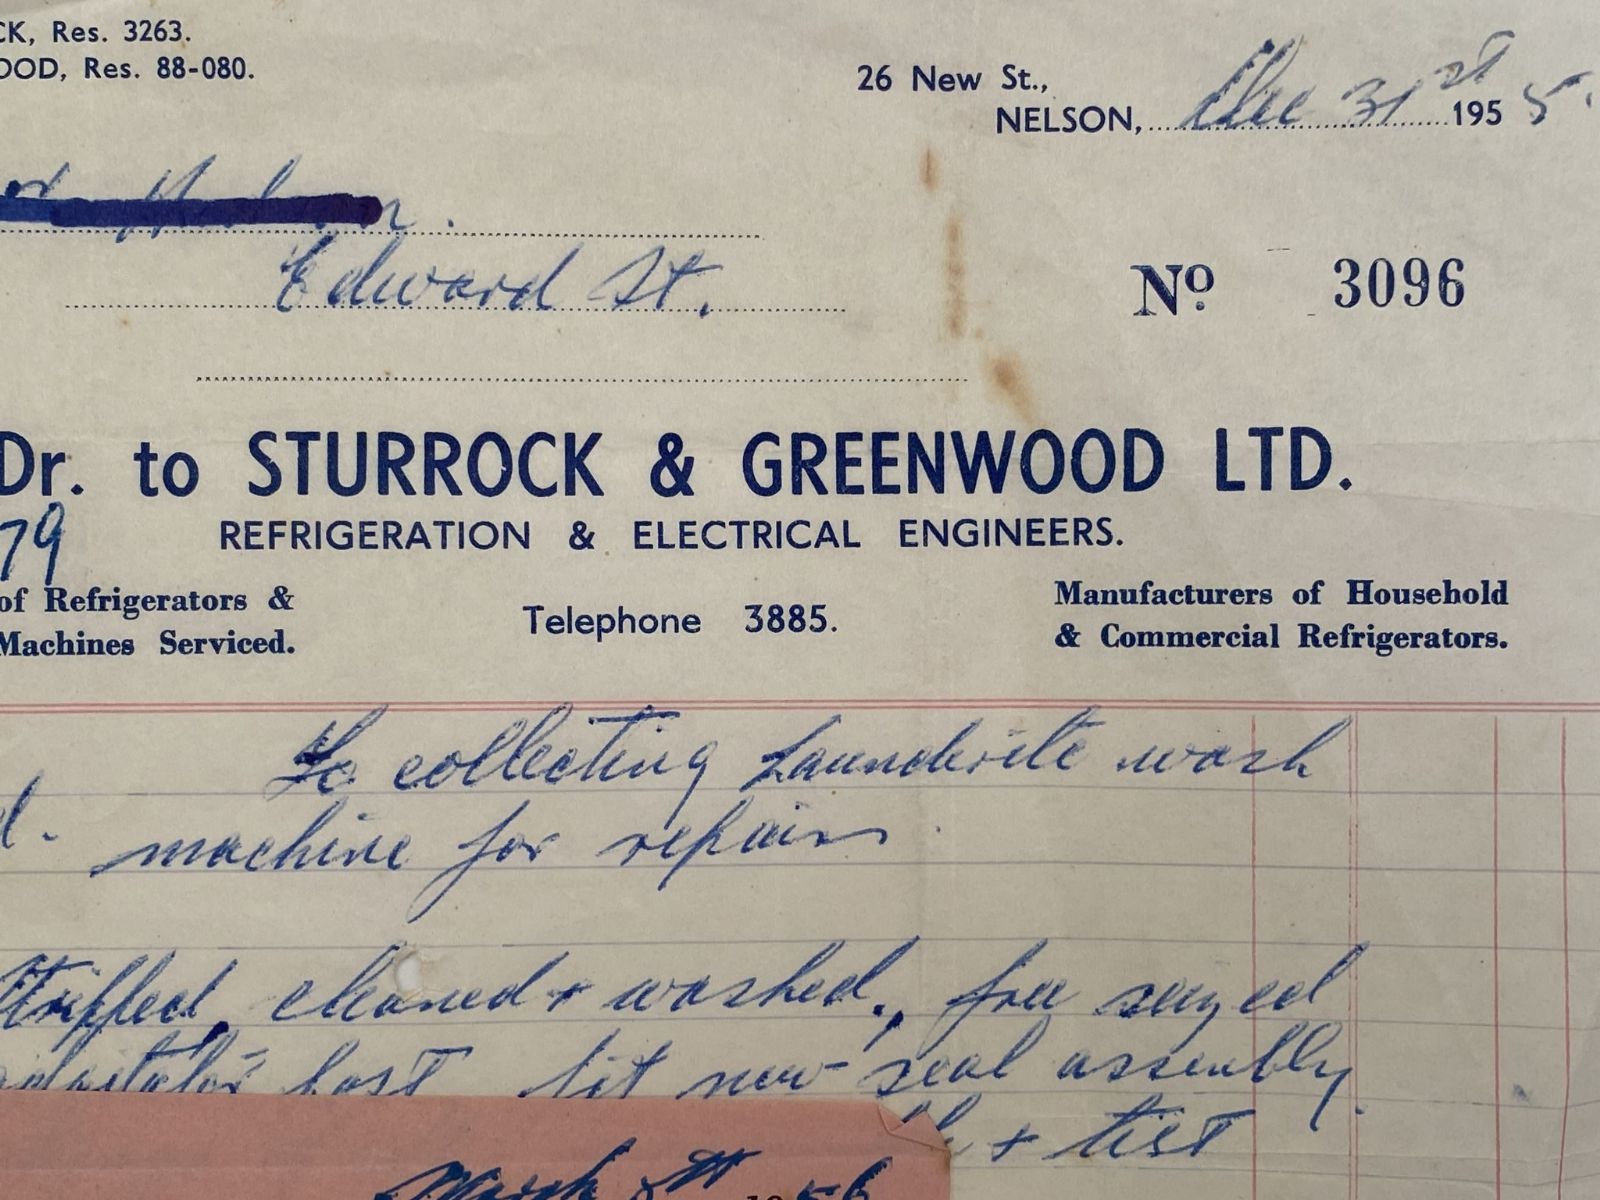 CK, Res. 3263.
OOD, Res. 88-080.
26 New St.,
NELSON, Dec 31st 1955.
Edward St.
No 3096
Dr. to STURROCK & GREENWOOD LTD.
79
REFRIGERATION & ELECTRICAL ENGINEERS.
of Refrigerators &
Machines Serviced.
Telephone 3885.
Manufacturers of Household
& Commercial Refrigerators.
To collecting Laundrite wash
machine for repairs.
Stripped, cleaned + washed, free seyzed
fit new seal assembly.
+ test
March 1956